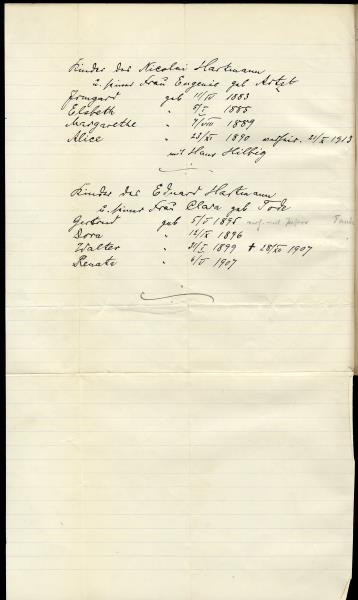 Kinder des Nicolai Hartmann
u. seiner Frau Eugenie geb Artzt
Irmgard geb 11/IV 1883
Elsbeth " 5/I 1885
Margarethe " 7/VII 1889
Alice " 23/XI 1890 verheir. 21/X 1913
mit Hans Hilbig
Kinder des Eduard Hartmann
u. seiner Frau Clara geb Tode
Gertrud geb 5/V 1895 mit
Dora " 12/X 1896
Walter " 31/I 1899 + 28/XI 1907
Renate " 6/V 1907